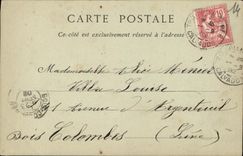 CARTE POSTALE
Ce côté est exclusivement réservé à l'adresse
14
10
Mademoiselle
Villa Louise
Avenue d'Argenteuil
Bois Colombes (Seine)
CALVADOS